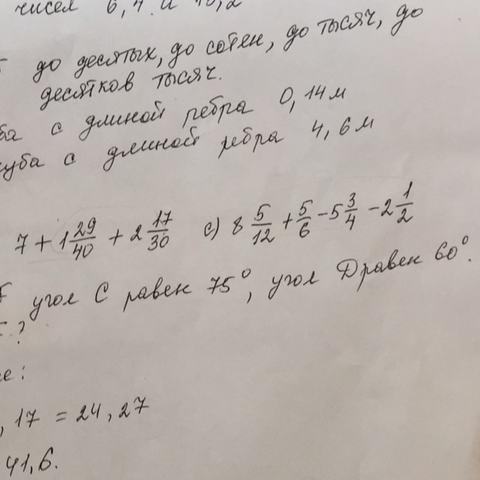 чисел 6,4 и
до десятых, до сотен, до тысяч, до
десятков тысяч.
с длиной ребра 0,14м
куба с длиной ребра 4,6м
7 + 1 29/40 + 2 17/30 с) 8 5/12 + 5/6 - 5 3/4 - 2 1/2
угол С равен 75°, угол D равен 60°.
?
е:
, 17 = 24, 27
41,6.